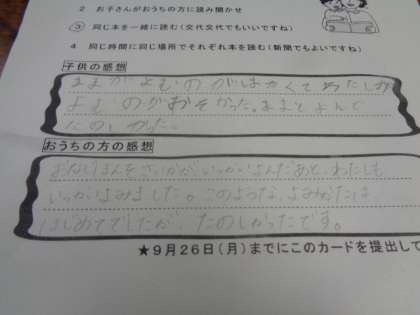 2 お子さんがおうちの方に読み聞かせ
③ 同じ本を一緒に読む(交代交代でもいいですね)
4 同じ時間に同じ場所でそれぞれ本を読む(新聞でもよいですね)
子供の感想
ままがよむのがはやくてわたしの
よむのがおそかった。ままとよんで
たのしかった。
おうちの方の感想
おなじほんを いっかいよんだあと、わたしも
いっかいよみました。このような、よみかたは
はじめてでしたが、たのしかったです。
★9月26日(月)までにこのカードを提出して